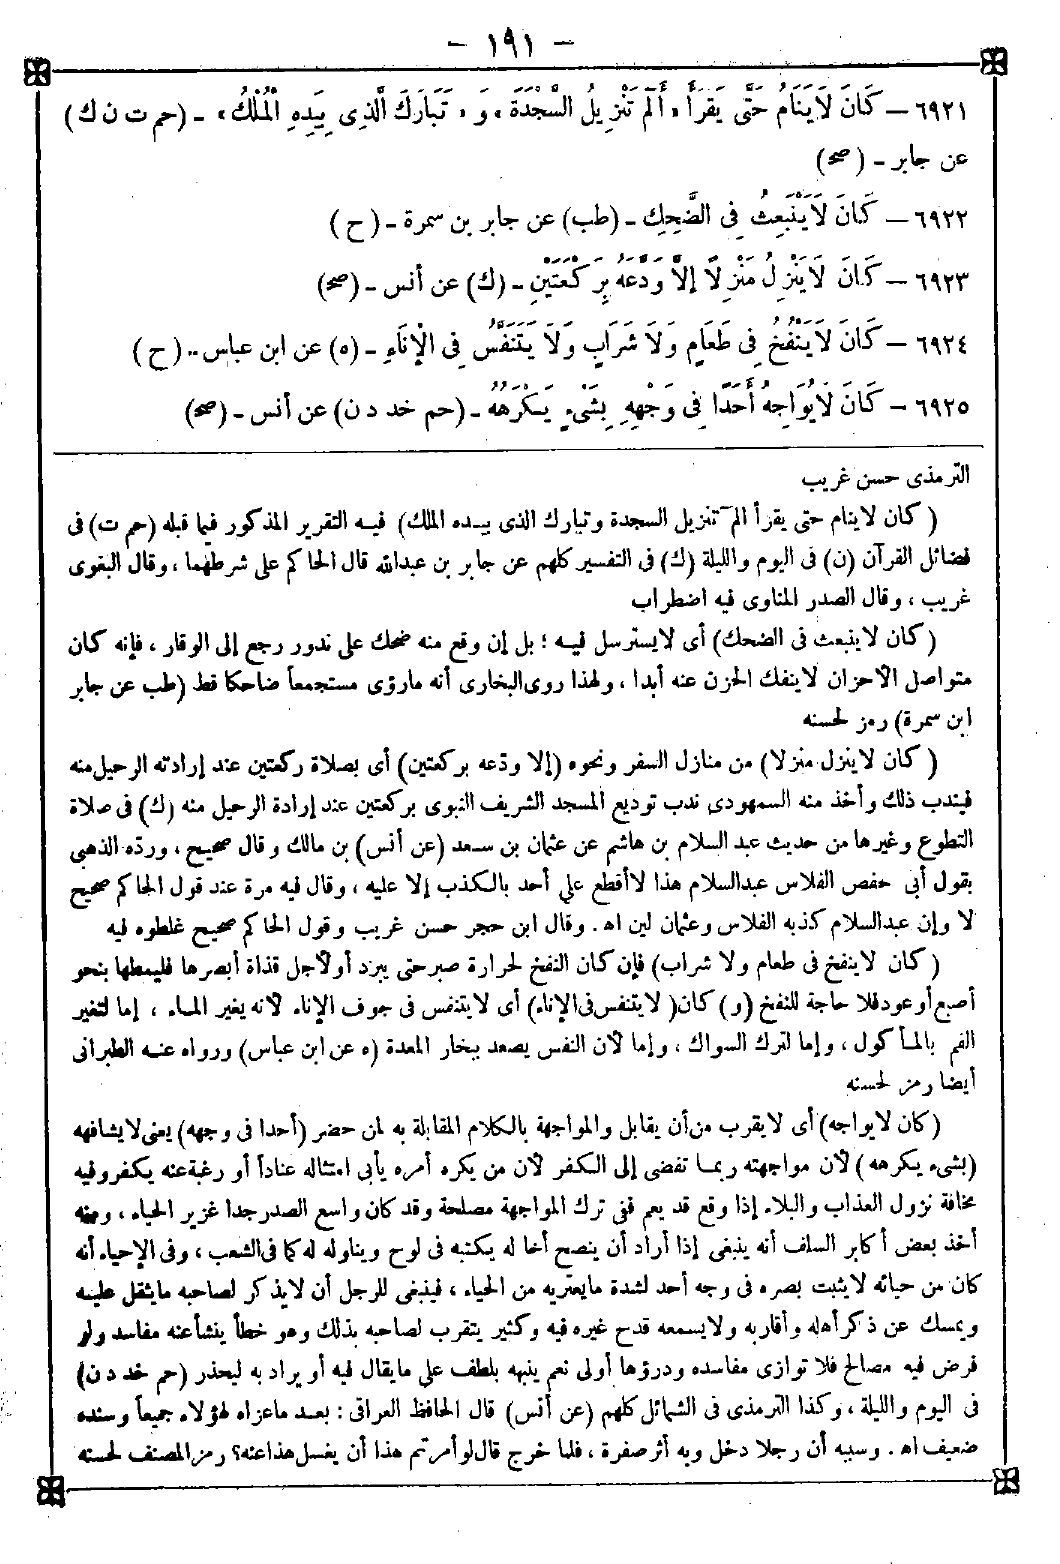 - ١٩١ -
٦٩٢١ — كَانَ لَا يَنَامُ حَتَّى يَقْرَأَ «أَلَمّ تَنْزِيلُ السَّجْدَةَ» وَ «تَبَارَكَ الَّذِى بِيَدِهِ الْمُلْكُ» - (حم ت ن ك)
عن جابر - (صح)
٦٩٢٢ — كَانَ لَا يَنْبَعِثُ فِى الضَّحِكِ - (طب) عن جابر بن سمرة - (ح)
٦٩٢٣ — كَانَ لَا يَنْزِلُ مَنْزِلًا إِلَّا وَدَّعَهُ بِرَكْعَتَيْنِ - (ك) عن أنس - (صح)
٦٩٢٤ — كَانَ لَا يَنْفُخُ فِى طَعَامٍ وَلَا شَرَابٍ وَلَا يَتَنَفَّسُ فِى الْإِنَاءِ - (ه) عن ابن عباس - (ح)
٦٩٢٥ — كَانَ لَا يُوَاجِهُ أَحَدًا فِى وَجْهِهِ بِشَىْءٍ يَكْرَهُهُ - (حم خد د ن) عن أنس - (صح)
الترمذى حسن غريب
( كان لاينام حتى يقرأ الم تنزيل السجدة وتبارك الذى بيده الملك) فيه التقرير المذكور فيما قبله (حم ت) فى
فضائل القرآن (ن) فى اليوم والليلة (ك) فى التفسير كلهم عن جابر بن عبدالله قال الحاكم على شرطهما ، وقال البغوى
غريب ، وقال الصدر المناوى فيه اضطراب
( كان لاينبعث فى الضحك) أى لايسترسل فيه ؛ بل إن وقع منه ضحك على ندور رجع إلى الوقار ، فإنه كان
متواصل الأحزان لاينفك الحزن عنه أبدا ، ولهذا روى البخارى أنه مارؤى مستجمعاً ضاحكا قط (طب عن جابر
ابن سمرة) رمز لحسنه
( كان لاينزل منزلا) من منازل السفر ونحوه (إلا ودّعه بركعتين) أى بصلاة ركعتين عند إرادته الرحيل منه
فيندب ذلك وأخذ منه السمهودى ندب توديع المسجد الشريف النبوى بركعتين عند إرادة الرحيل منه (ك) فى صلاة
التطوع وغيرها من حديث عبد السلام بن هاشم عن عثمان بن سعد (عن أنس) بن مالك وقال صحيح ، وردّه الذهبى
بقول أبى حفص الفلاس عبدالسلام هذا لاأقطع على أحد بالكذب إلا عليه ، وقال فيه مرة عند قول الحاكم صحيح
لا وإن عبدالسلام كذبه الفلاس وعثمان لين اه. وقال ابن حجر حسن غريب وقول الحاكم صحيح غلطوه فيه
( كان لاينفخ فى طعام ولا شراب) فإن كان النفخ لحرارة صبر حتى يبرد أو لأجل قذاة أبصرها فليمطها بنحو
أصبع أو عود فلا حاجة للنفخ (و) كان (لايتنفس فى الإناء) أى لايتنفس فى جوف الإناء لأنه يغير الماء ، إما لتغير
الفم بالمأكول ، وإما لترك السواك ، وإما لأن النفس يصعد ببخار المعدة (ه عن ابن عباس) ورواه عنه الطبرانى
أيضا رمز لحسنه
(كان لايواجه) أى لايقرب من أن يقابل والمواجهة بالكلام المقابلة به لمن حضر (أحدا فى وجهه) يعنى لايشافهه
(بشىء يكرهه) لأن مواجهته ربما تفضى إلى الكفر لأن من يكره أمره يأبى امتثاله عناداً أو رغبة عنه يكفر وفيه
مخافة نزول العذاب والبلاء إذا وقع قد يعم ففى ترك المواجهة مصلحة وقد كان واسع الصدر جدا غزير الحياء ، ومنه
أخذ بعض أكابر السلف أنه ينبغى إذا أراد أن ينصح أخا له يكتبه فى لوح ويناوله له كما فى الشعب ، وفى الإحياء أنه
كان من حيائه لايثبت بصره فى وجه أحد لشدة مايعتريه من الحياء ، فينبغى للرجل أن لايذكر لصاحبه مايثقل عليه
ويمسك عن ذكر أهله وأقاربه ولايسمعه قدح غيره فيه وكثير يتقرب لصاحبه بذلك وهو خطأ ينشأ عنه مفاسد ولو
فرض فيه مصالح فلا توازى مفاسده ودرؤها أولى نعم ينبهه بلطف على مايقال فيه أو يراد به ليحذر (حم خد د ن)
فى اليوم والليلة ، وكذا الترمذى فى الشمائل كلهم (عن أنس) قال الحافظ العراقى : بعد ماعزاه لهؤلاء جميعاً وسنده
ضعيف اه . وسببه أن رجلا دخل وبه أثر صفرة ، فلما خرج قال لو أمرتم هذا أن يغسل هذا عنه؟ رمز المصنف لحسنه